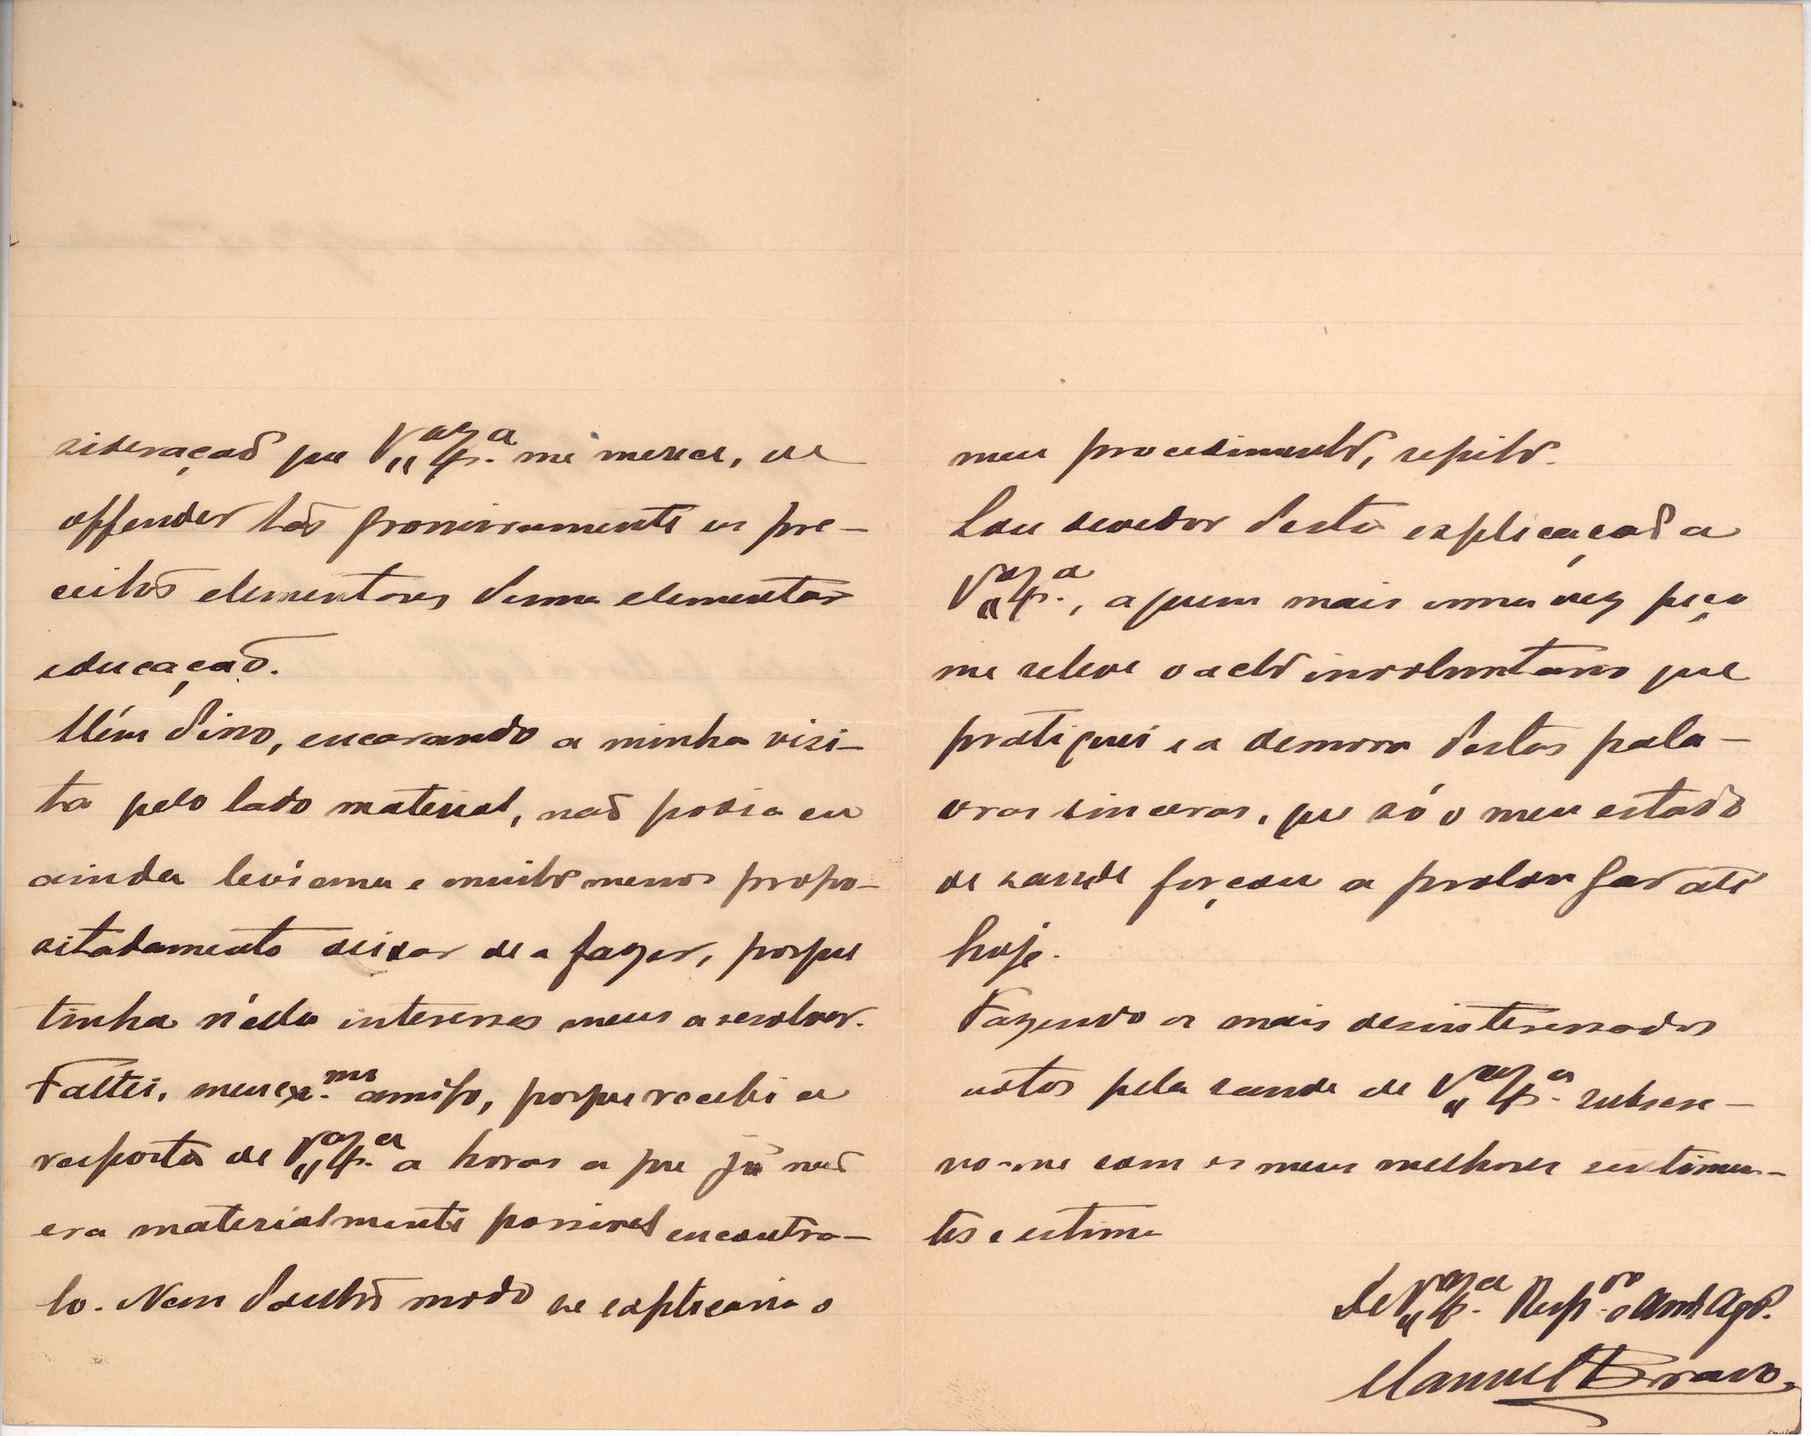 sideração que V. Ex.ª me merece, de
offender tão grosseiramente os pre-
ceitos elementares duma elementar
educação.
Além disso, encarando a minha visi-
ta pelo lado material, não podia eu
ainda leviana e muito menos propo-
sitadamente deixar de a fazer, porque
tinha n'ella interesses meus a resolver.
Faltei, meu ex.mo amigo, porque recebi a
resposta de V. Ex.ª a horas a que já não
era materialmente possivel encontra-
lo. Nem doutro modo se explicaria o
meu procedimento, repito.
Sou devedor desta explicação a
V. Ex.ª, a quem mais uma vez peço
me releve o acto involuntario que
pratiquei e a demora destas pala-
vras sinceras, que só o meu estado
de saude forçou a prolongar até
hoje.
Fazendo os mais desinteressados
votos pela saude de V. Ex.as subscre-
vo-me com os meus melhores sentimen-
tos e estima
De V. Ex.ª Resp.or e Am.º Agd.º
Manuel Bravo